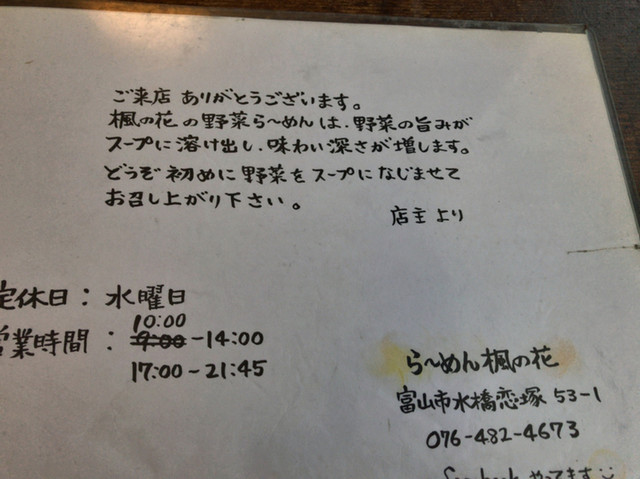 ご来店 ありがとうございます。
楓の花の野菜ら〜めんは、野菜の旨みが
スープに溶け出し、味わい深さが増します。
どうぞ初めに野菜をスープになじませて
お召し上がり下さい。
店主より
定休日：水曜日
10:00
営業時間：9:00-14:00
17:00-21:45
ら〜めん楓の花
富山市水橋恋塚53-1
076-482-4673
facebookやってます